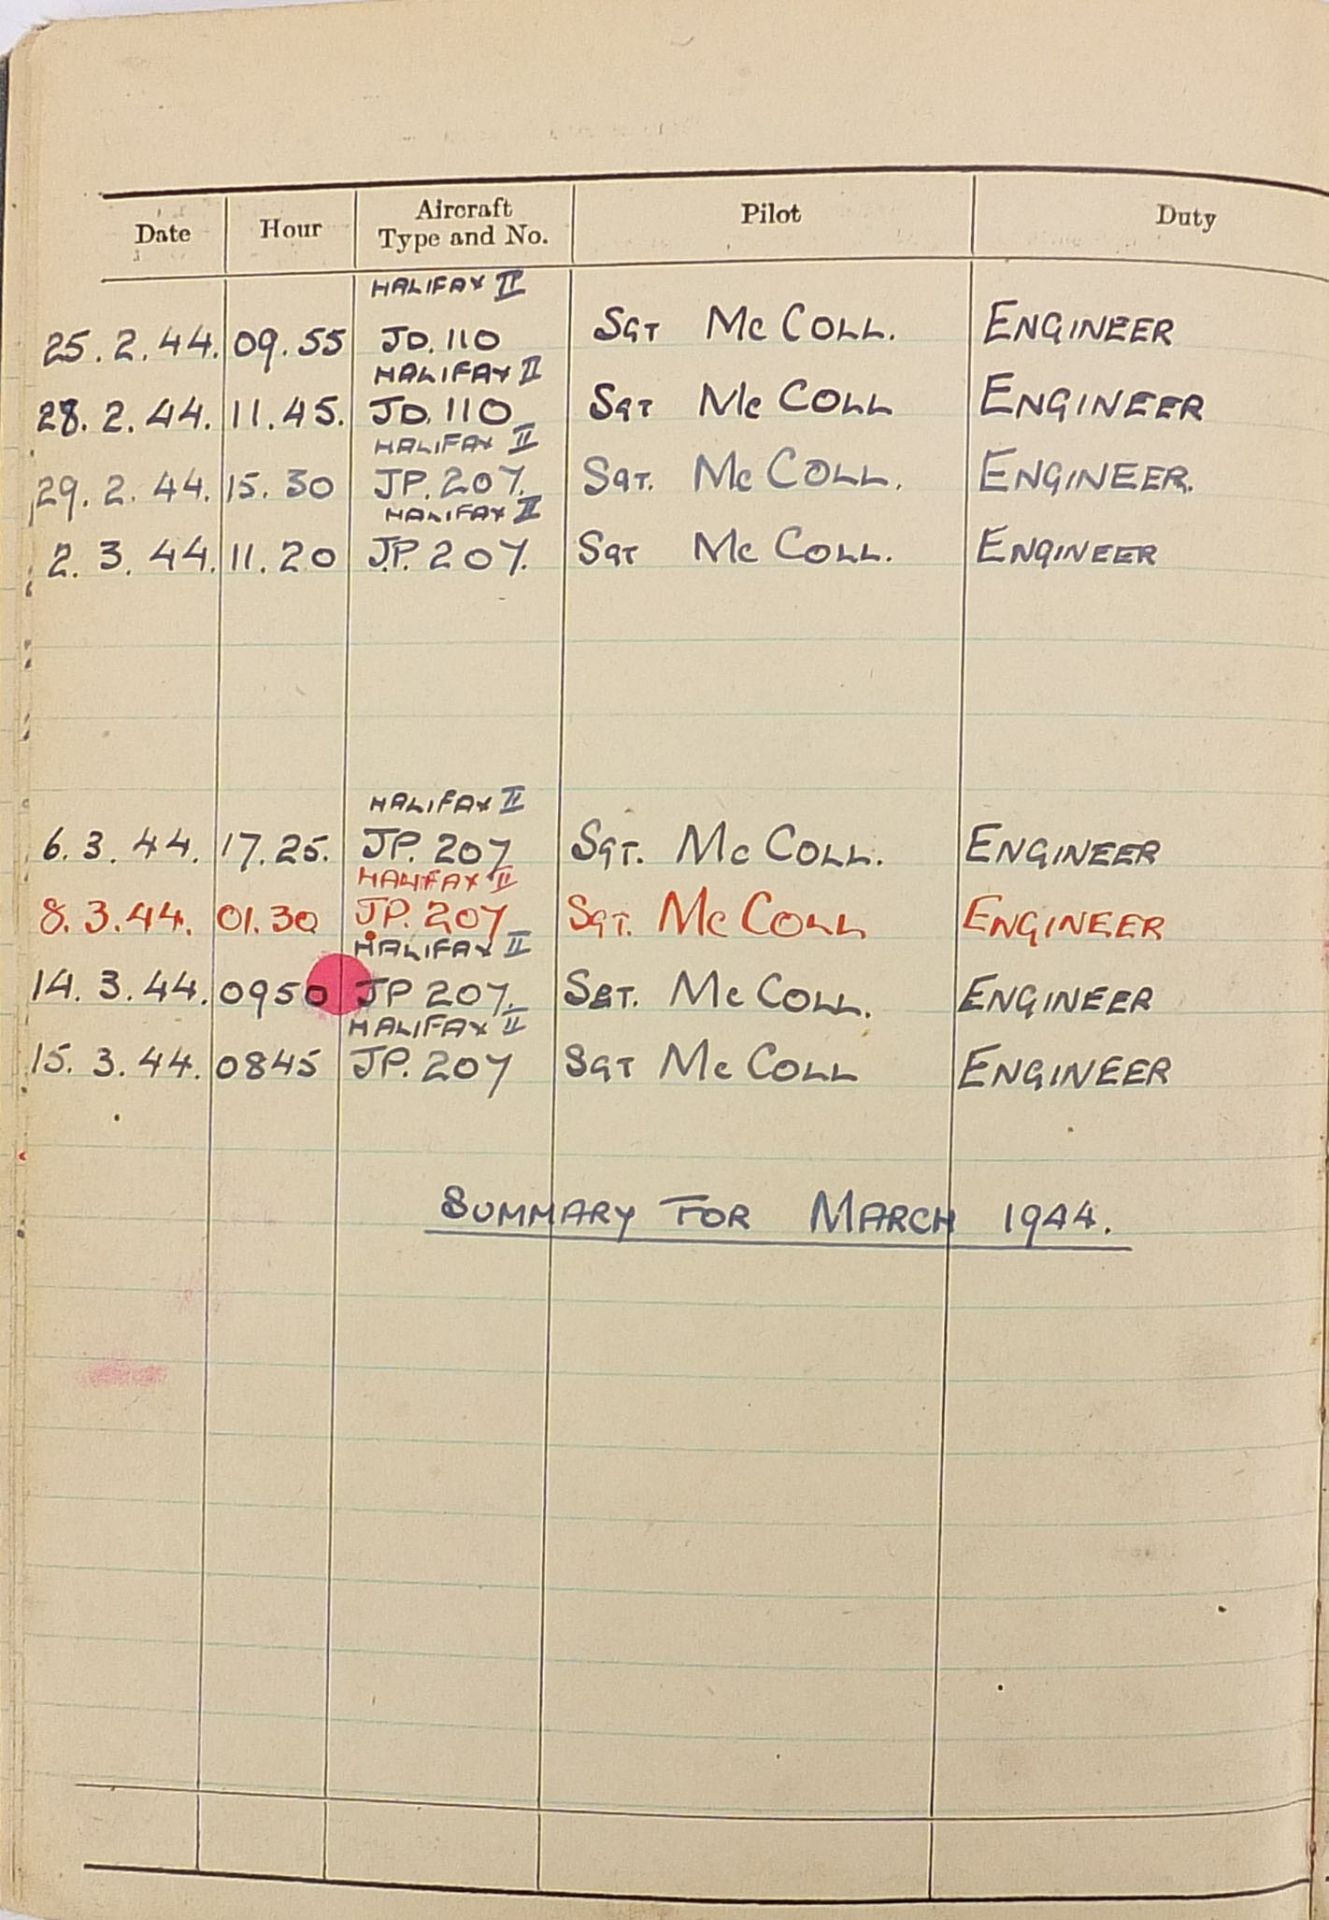 Date Hour Aircraft Type and No. Pilot Duty
HALIFAX II
25.2.44. 09.55 JD.110 SGT McCOLL. ENGINEER
HALIFAX II
28.2.44. 11.45. JD.110 SGT McCOLL ENGINEER
HALIFAX II
29.2.44. 15.30 JP.207. SGT. McCOLL. ENGINEER.
HALIFAX II
2.3.44. 11.20 J.P.207. SGT McCOLL. ENGINEER
HALIFAX II
6.3.44. 17.25. JP.207 SGT. McCOLL. ENGINEER
HALIFAX II
8.3.44. 01.30 JP.207 SGT. McCOLL ENGINEER
HALIFAX II
14.3.44. 0950 JP 207. SGT. McCOLL. ENGINEER
HALIFAX II
15.3.44. 0845 JP.207 SGT McCOLL ENGINEER
SUMMARY FOR MARCH 1944.